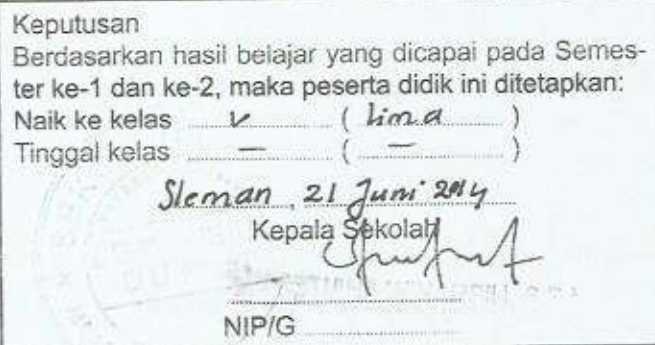 Keputusan
Berdasarkan hasil belajar yang dicapai pada Semes-
ter ke-1 dan ke-2, maka peserta didik ini ditetapkan:
Naik ke kelas V ( lima )
Tinggal kelas — ( — )
Sleman, 21 Juni 2014
Kepala Sekolah
NIP/G